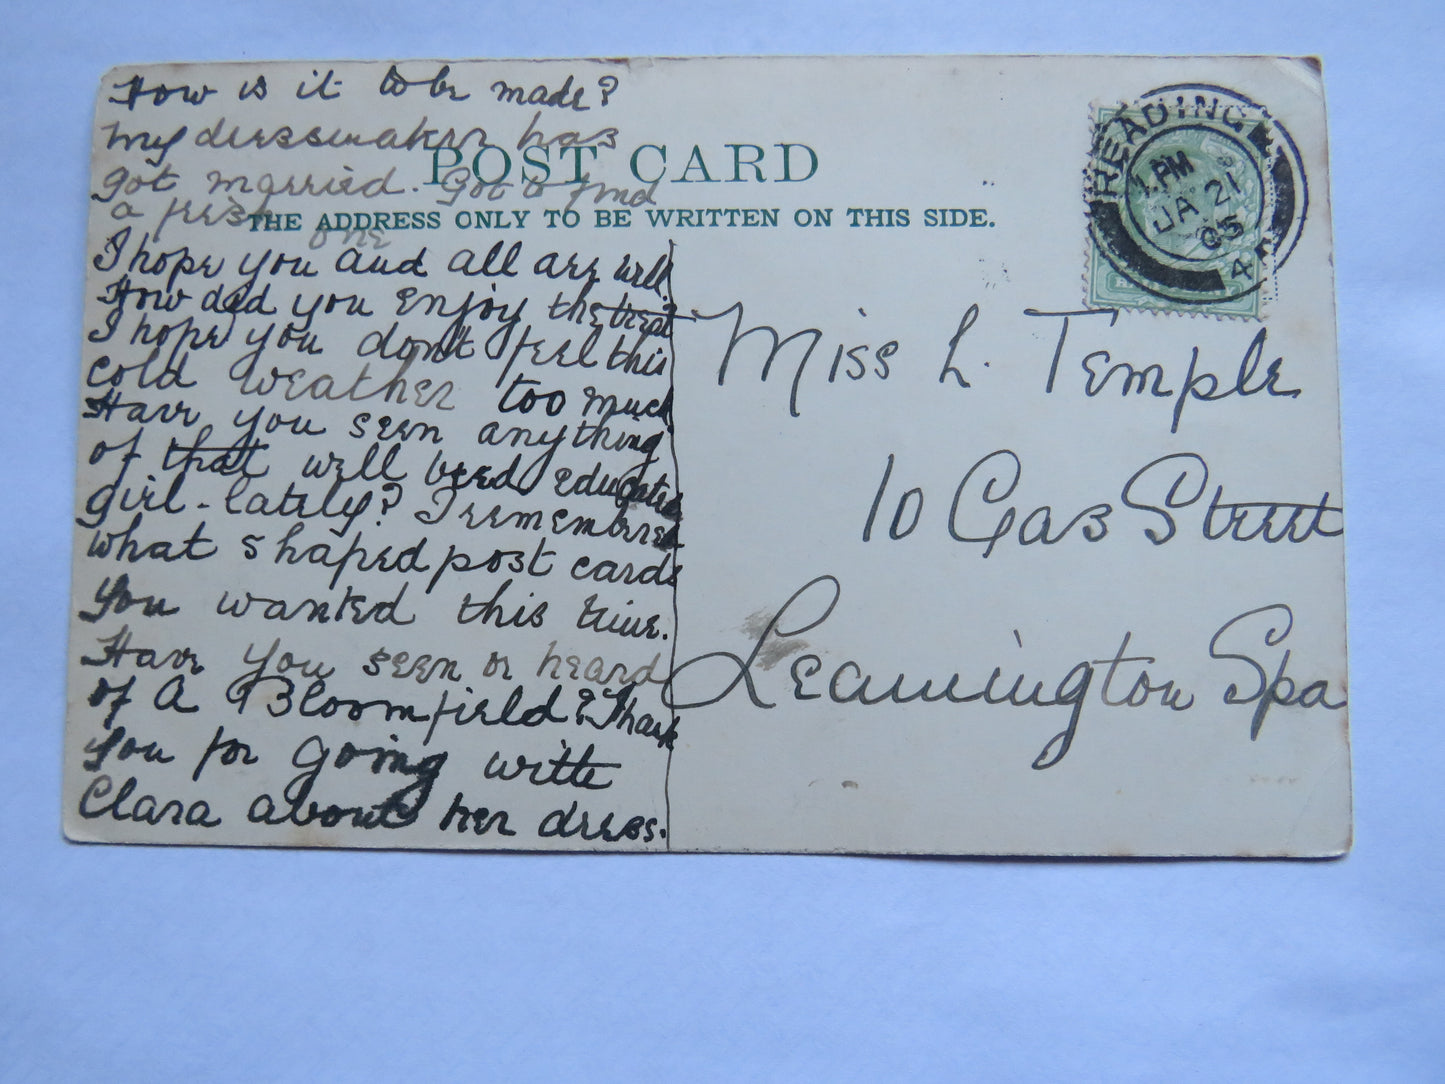 How is it to be made?
my dressmaker has
got married. Got to find
a fresh one
POST CARD
THE ADDRESS ONLY TO BE WRITTEN ON THIS SIDE.
I hope you and all are well.
How did you enjoy the treat?
I hope you don't feel this
cold weather too much
Have you seen anything
of that well bred educated
girl - lately? I remembered
what shaped post cards
you wanted this time.
Have you seen or heard
of A Bloomfield? Thank
you for going write
Clara about her dress.
READING
1. PM
JA 21
05
4
Miss L. Temple
10 Gas Street
Leamington Spa